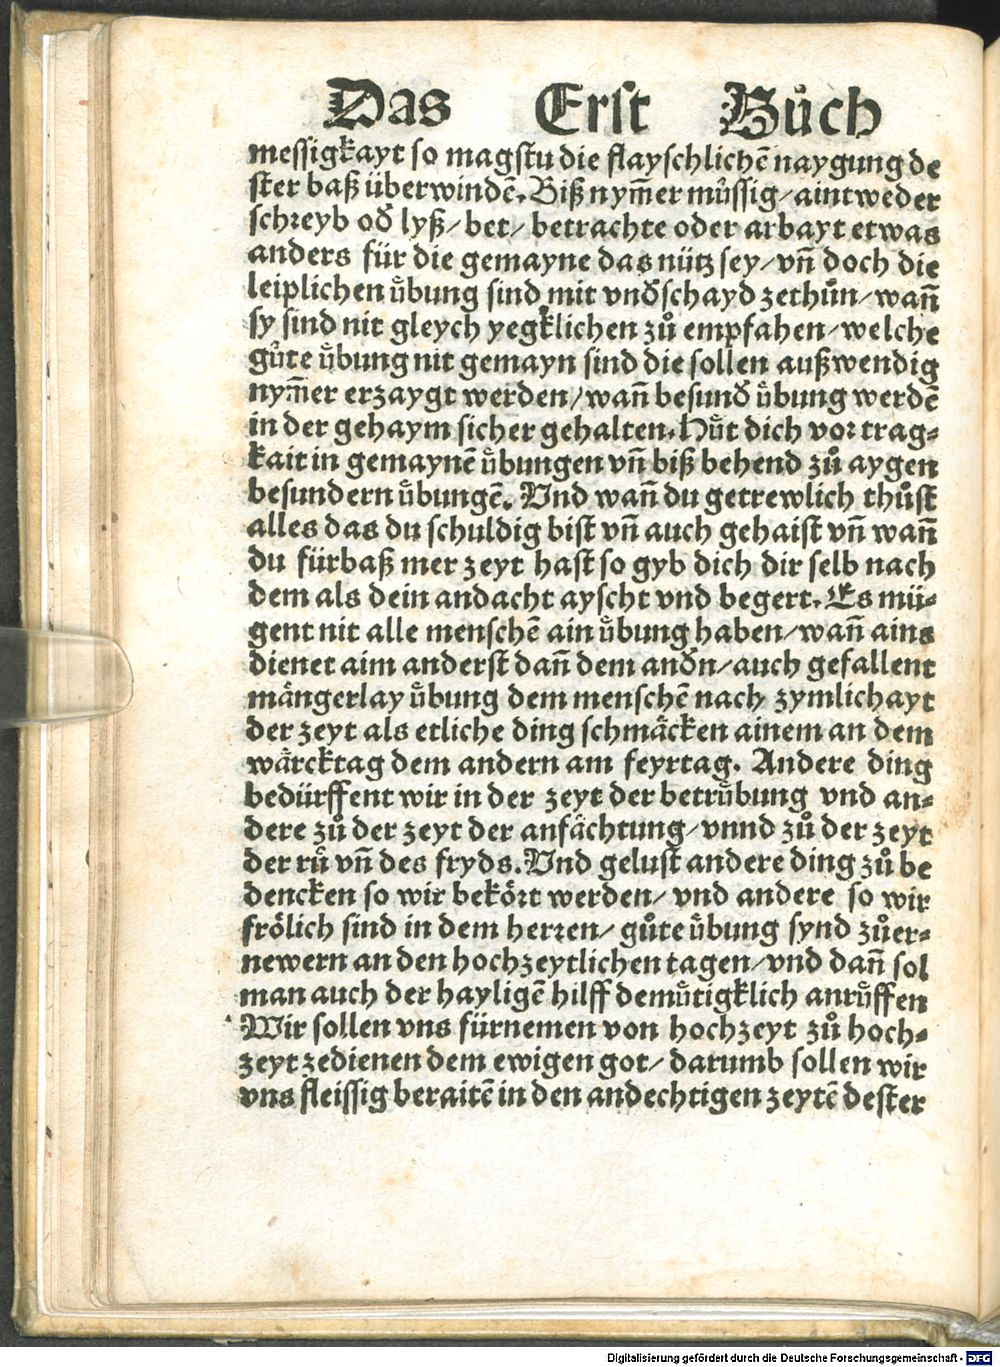 Das Erst Bůch
messigkayt so magstu die flayschlichē naygung de
ster baß überwindē. Biß nym̄er můssig/ aintweder
schreyb oď lyß/ bet/ betrachte oder arbayt etwas
anders für die gemayne das nütz sey/ vn̄ doch die
leiplichen u̇̈bung sind mit vnďschayd zethůn/ wan̄
sy sind nit gleych yegklichen zů empfahen/ welche
gůte u̇̈bung nit gemayn sind die sollen außwendig
nym̄er erzaygt werden/ wan̄ besunď u̇̈bung werdē
in der gehaym sicher gehalten. Hu̇̈t dich vor trag⸗
kait in gemaynē u̇̈bungen vn̄ biß behend zů aygen
besundern u̇̈bungē. Vnd wan̄ du getrewlich thůst
alles das du schuldig bist vn̄ auch gehaist vn̄ wan̄
du fürbaß mer zeyt hast so gyb dich dir selb nach
dem als dein andacht ayscht vnd begert. Es mü⸗
gent nit alle menschē ain u̇̈bung haben/ wan̄ ains
dienet aim anderst dan̄ dem anďn/ auch gefallent
mångerlay u̇̈bung dem menschē nach zymlichayt
der zeyt als etliche ding schmåcken ainem an dem
wårcktag dem andern am feyrtag. Andere ding
bedürffent wir in der zeyt der betru̇̈bung vnd an⸗
dere zů der zeyt der anfåchtung/ vnnd zů der zeyt
der ru̇̈ vn̄ des fryds. Vnd gelust andere ding zů be
dencken so wir bekört werden/ vnd andere so wir
frölich sind in dem herzen/ gůte u̇̈bung synd zůer⸗
newern an den hochzeytlichen tagen/ vnd dan̄ sol
man auch der hayligē hilff demu̇̈tigklich anru̇̈ffen
Wir sollen vns fürnemen von hochzeyt zů hoch⸗
zeyt zedienen dem ewigen got/ darumb sollen wir
vns fleissig beraitē in den andechtigen zeytē dester
Digitalisierung gefördert durch die Deutsche Forschungsgemeinschaft - DFG